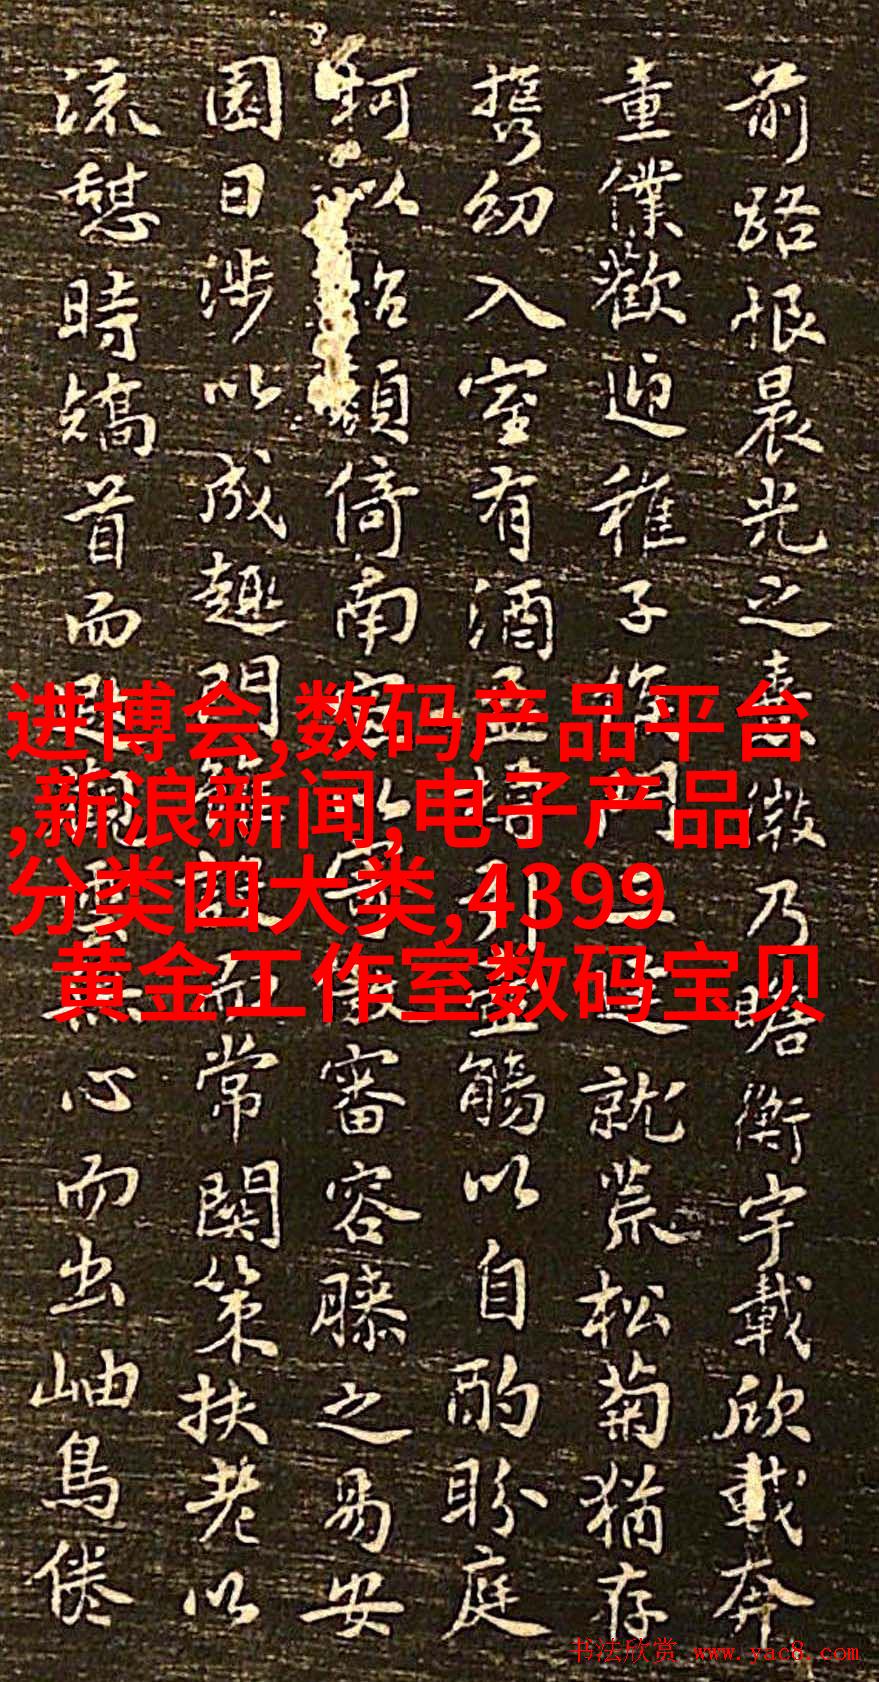 前路恨晨光之熹微乃瞻衡宇載欣載奔
童僕歡迎稚子候門三逕就荒松菊猶存
攜幼入室有酒盈樽引壺觴以自酌盼庭
柯以怡顏倚南窗以寄傲審容膝之易安
園日涉以成趣門雖設而常關策扶老以
流憩時矯首而遐觀雲無心而出岫鳥倦
进博会,数码产品平台
,新浪新闻,电子产品
分类四大类,4399
黄金工作室数码宝贝
书法欣赏 www.yac8.com